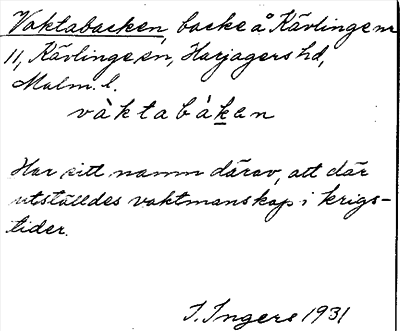 Vaktabacken, backe å Kävlinge nr
11, Kävlinge sn, Harjagers hd,
Malm. l.
vàktabákan
Har sitt namn därav, att där
utställdes vaktmanskap i krigs-
tider.
I. Ingers 1931